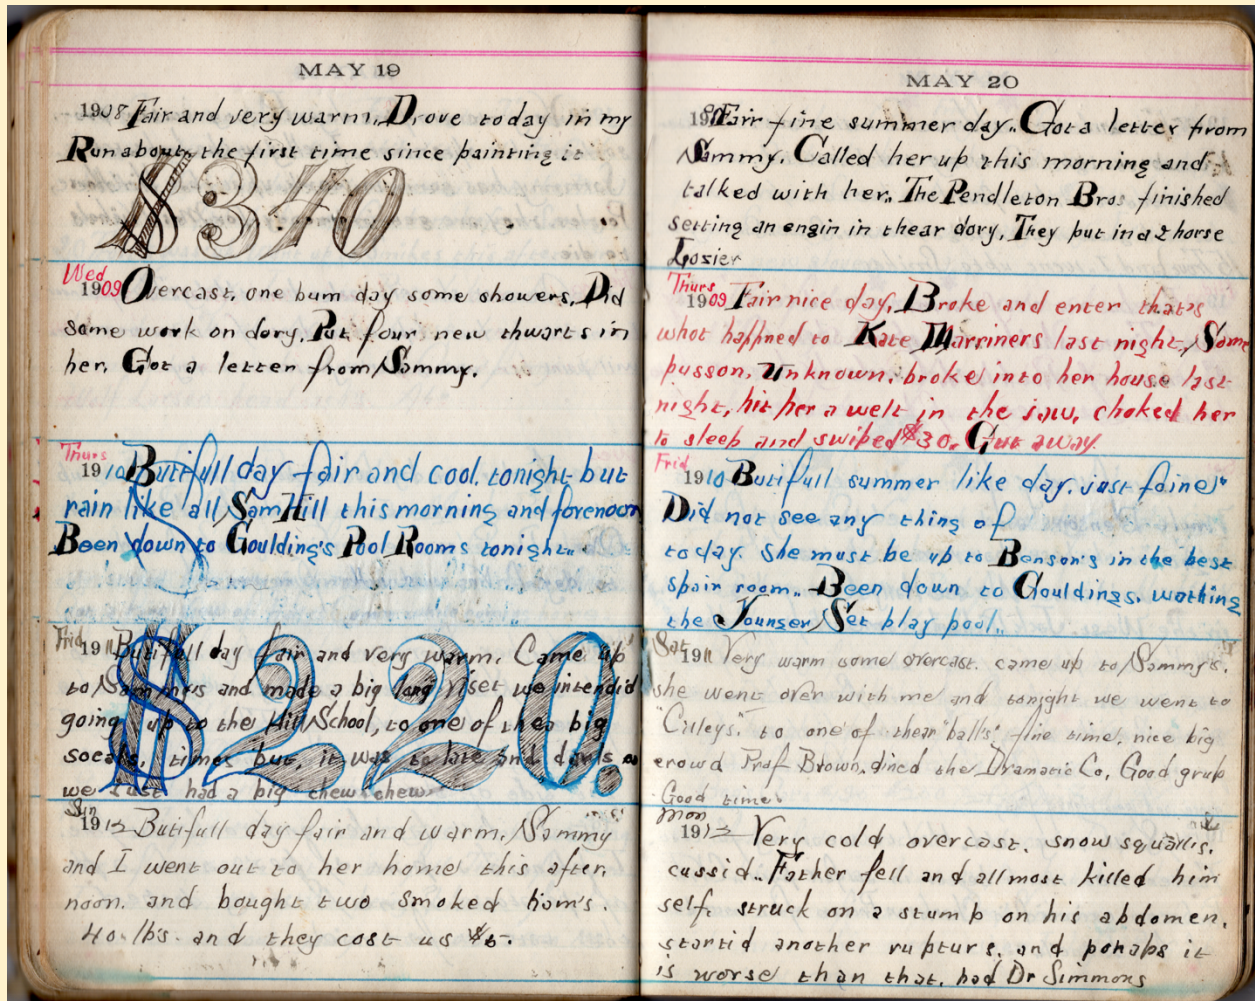 MAY 19
1908 Fair and very warm. Drove today in my
Runabout, the first time since painting it
$340
Wed
1909 Overcast, one bum day some showers. Did
some work on dory. Put four new thwarts in
her. Got a letter from Sammy.
Thurs
1910 Butifull day fair and cool, tonight but
rain like all Sam Hill this morning and forenoon
Been down to Goulding's Pool Rooms tonight..
Frid
1911 Butifull day fair and very warm. Came up
to Sammys and made a big long viset we intendid
going up to the Hill School, to one of thea big
socals, times but, it was to late and
we Just had a big chew chew
$220.
Sun
1912 Butifull day fair and warm, Sammy
and I went out to her home this after
noon. and bought two smoked ham's.
40. lbs. and they cost us $6.
MAY 20
1908 Fairr fine summer day.. Got a letter from
Sammy. Called her up this morning and
talked with her. The Pendleton Bros finished
setting an engin in thear dory, They put in a 2 horse
Lozier
Thurs
1909 Fair nice day, Broke and enter that's
whot happned to Kate Marriners last night, Some
pusson, unknown, broke into her house last
night, hit her a welt in the jaw, choked her
to sleep and swiped $30. Gut away.
Frid
1910 Butifull summer like day, just faine"
Did not see any thing of
today. she must be up to Benson's in the best
spair room.. Been down to Gouldings, wathing
the Younser Set play pool..
Sat
1911 Very warm some overcast. came up to Sammy's.
she went over with me and tonight we went to
"Crileys". to one of thear "balls", fine time, nice big
crowd Prof Brown, dinced the Dramatic Co. Good grub
Good time.
Mon
1912 Very cold overcast. snow squalls,
cussid.. Father fell and allmost killed him
self, struck on a stump on his abdomen,
startid another rupturs, and pohaps it
is worse than that, had Dr Simmons